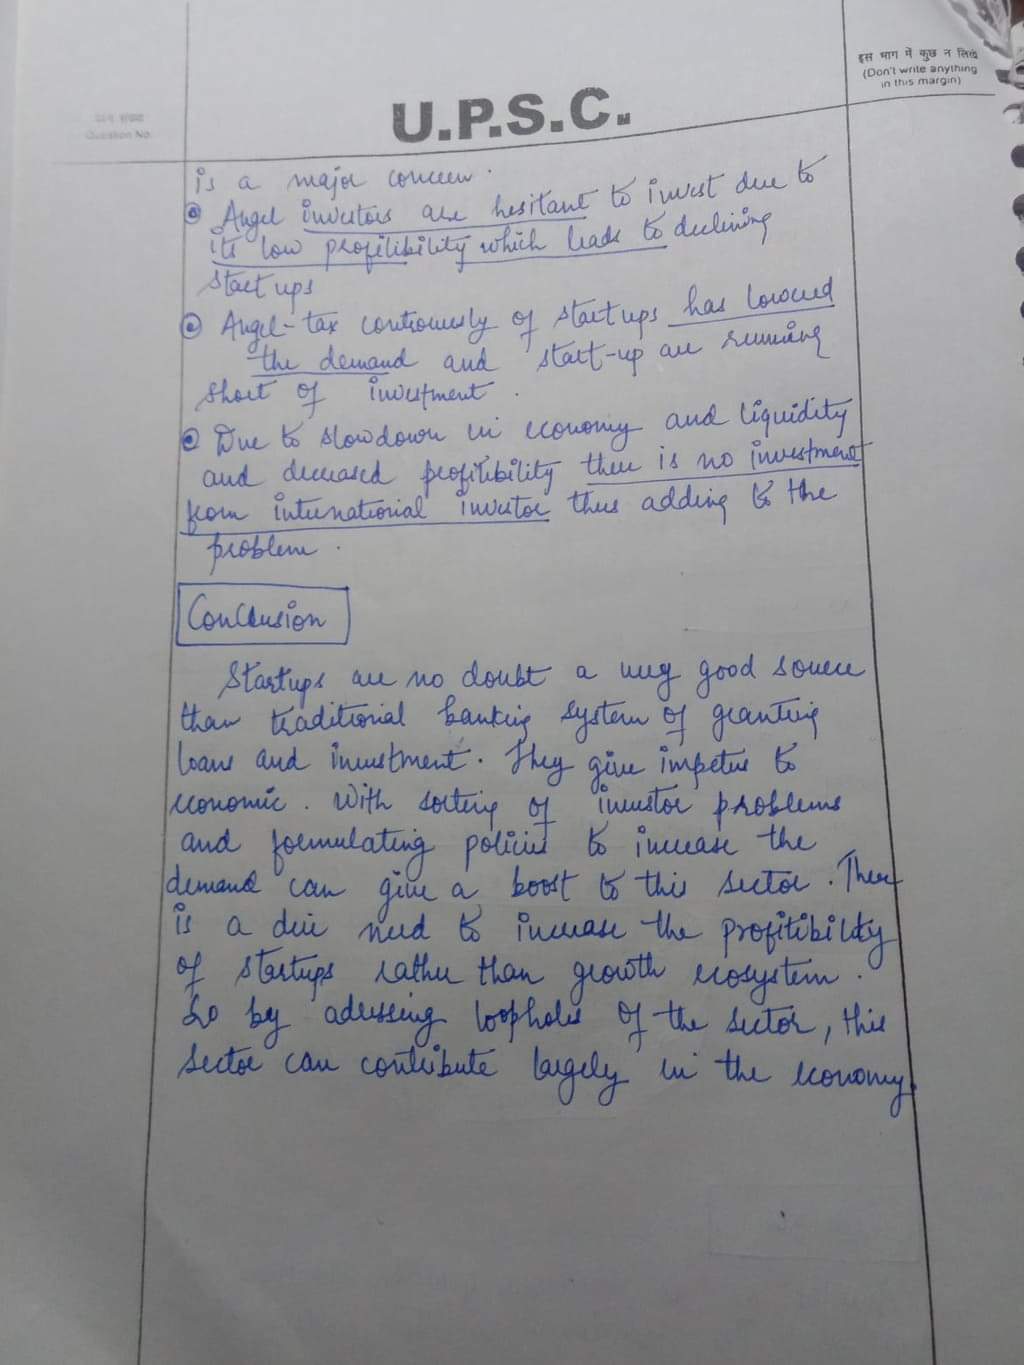 इस भाग में कुछ न लिखें
(Don't write anything
in this margin)
Question No
U.P.S.C.
is a major concern.
Angel investors are hesitant to invest due to
its low profilibility which leads to declining
startups
Angel-tax controversly of startups has lowered
the demand and start-up are running
short of investment.
Due to slowdown in economy and liquidity
and decreased profitibility there is no investment
from international investor thus adding to the
problem.
Conclusion
Startups are no doubt a very good source
than traditional banking system of granting
loans and investment. They give impetus to
economic. With sorting of investor problems
and formulating policies to increase the
demand can give a boost to this sector. There
is a dire need to increase the profitibility
of startups rather than growth ecosystem.
So by adressing loopholes of the sector, this
sector can contribute largely in the economy.